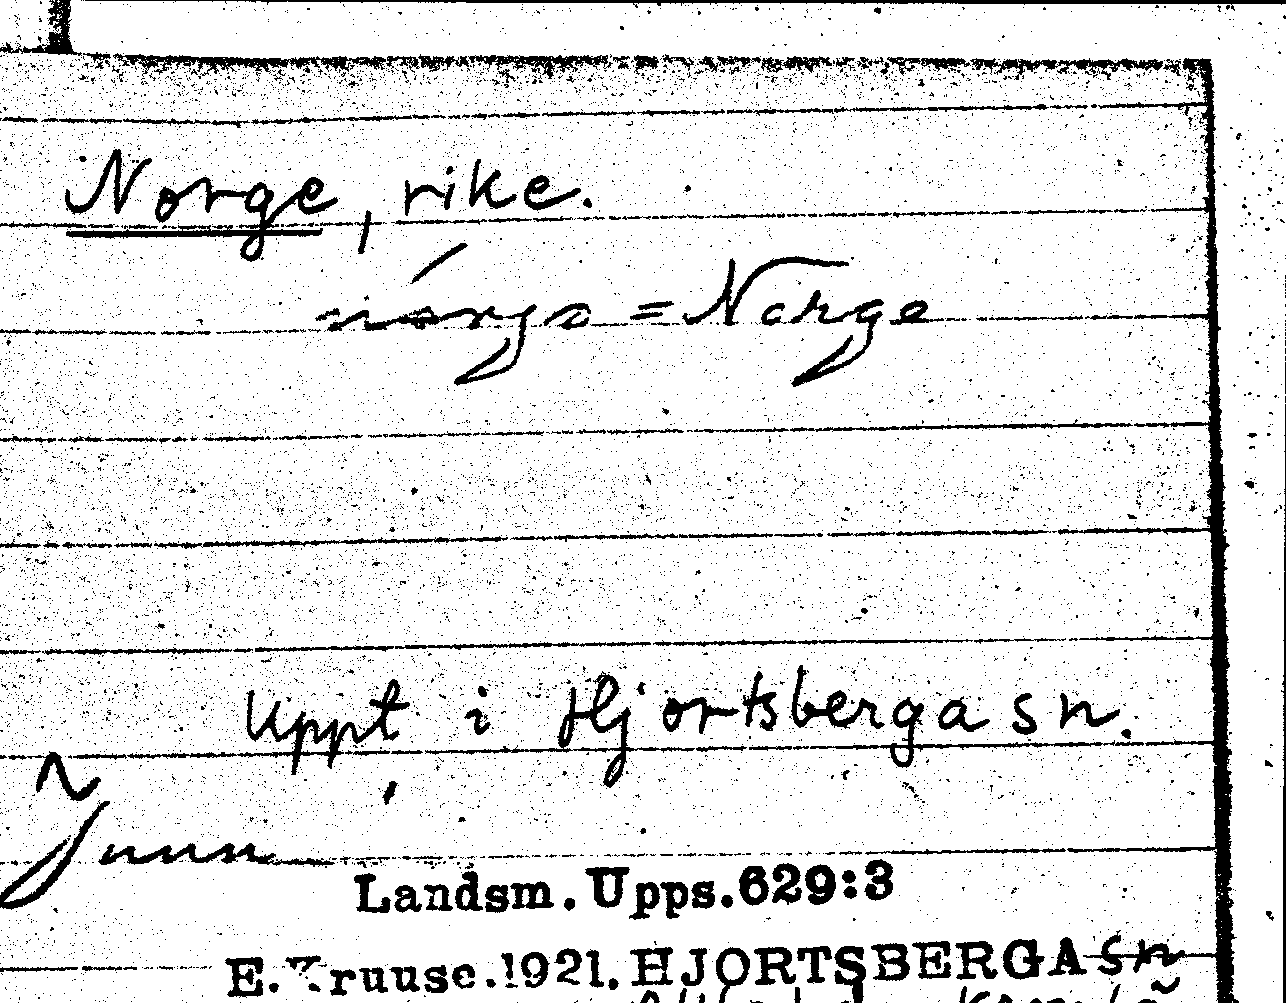 Norge, rike.
= Norge
Uppt i Hjortsberga sn.
Landsm. Upps. 629:3
E. Kruuse. 1921. HJORTSBERGA sn